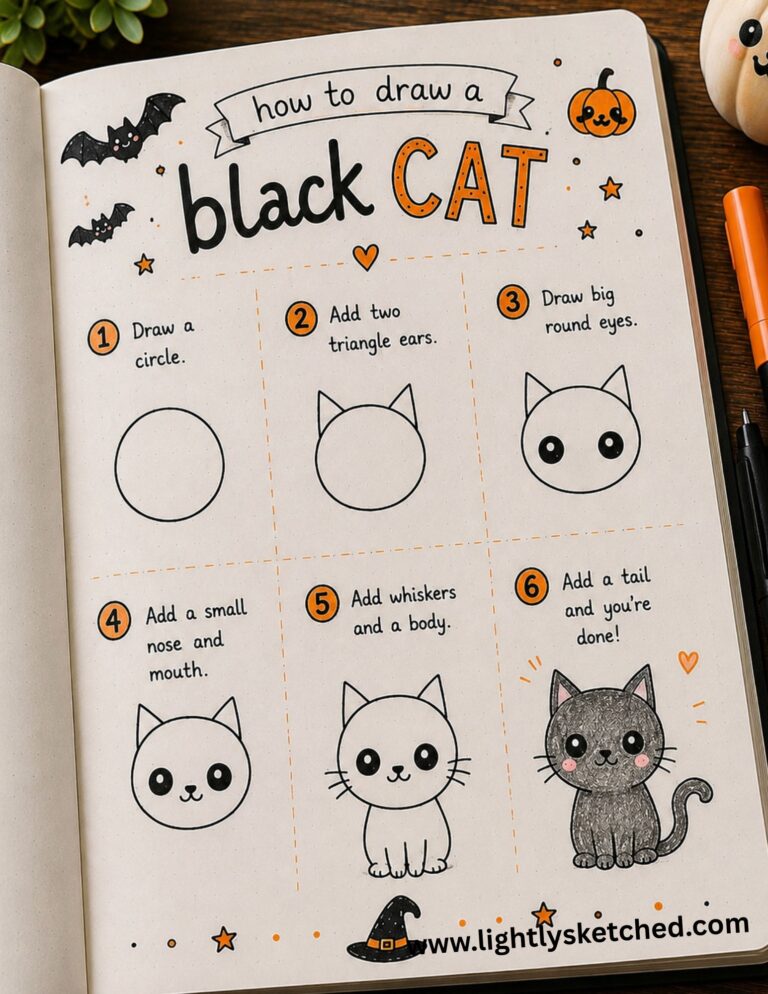 how to draw a
black CAT
1 Draw a
circle.
2 Add two
triangle ears.
3 Draw big
round eyes.
4 Add a small
nose and
mouth.
5 Add whiskers
and a body.
6 Add a tail
and you're
done!
www.lightlysketched.com